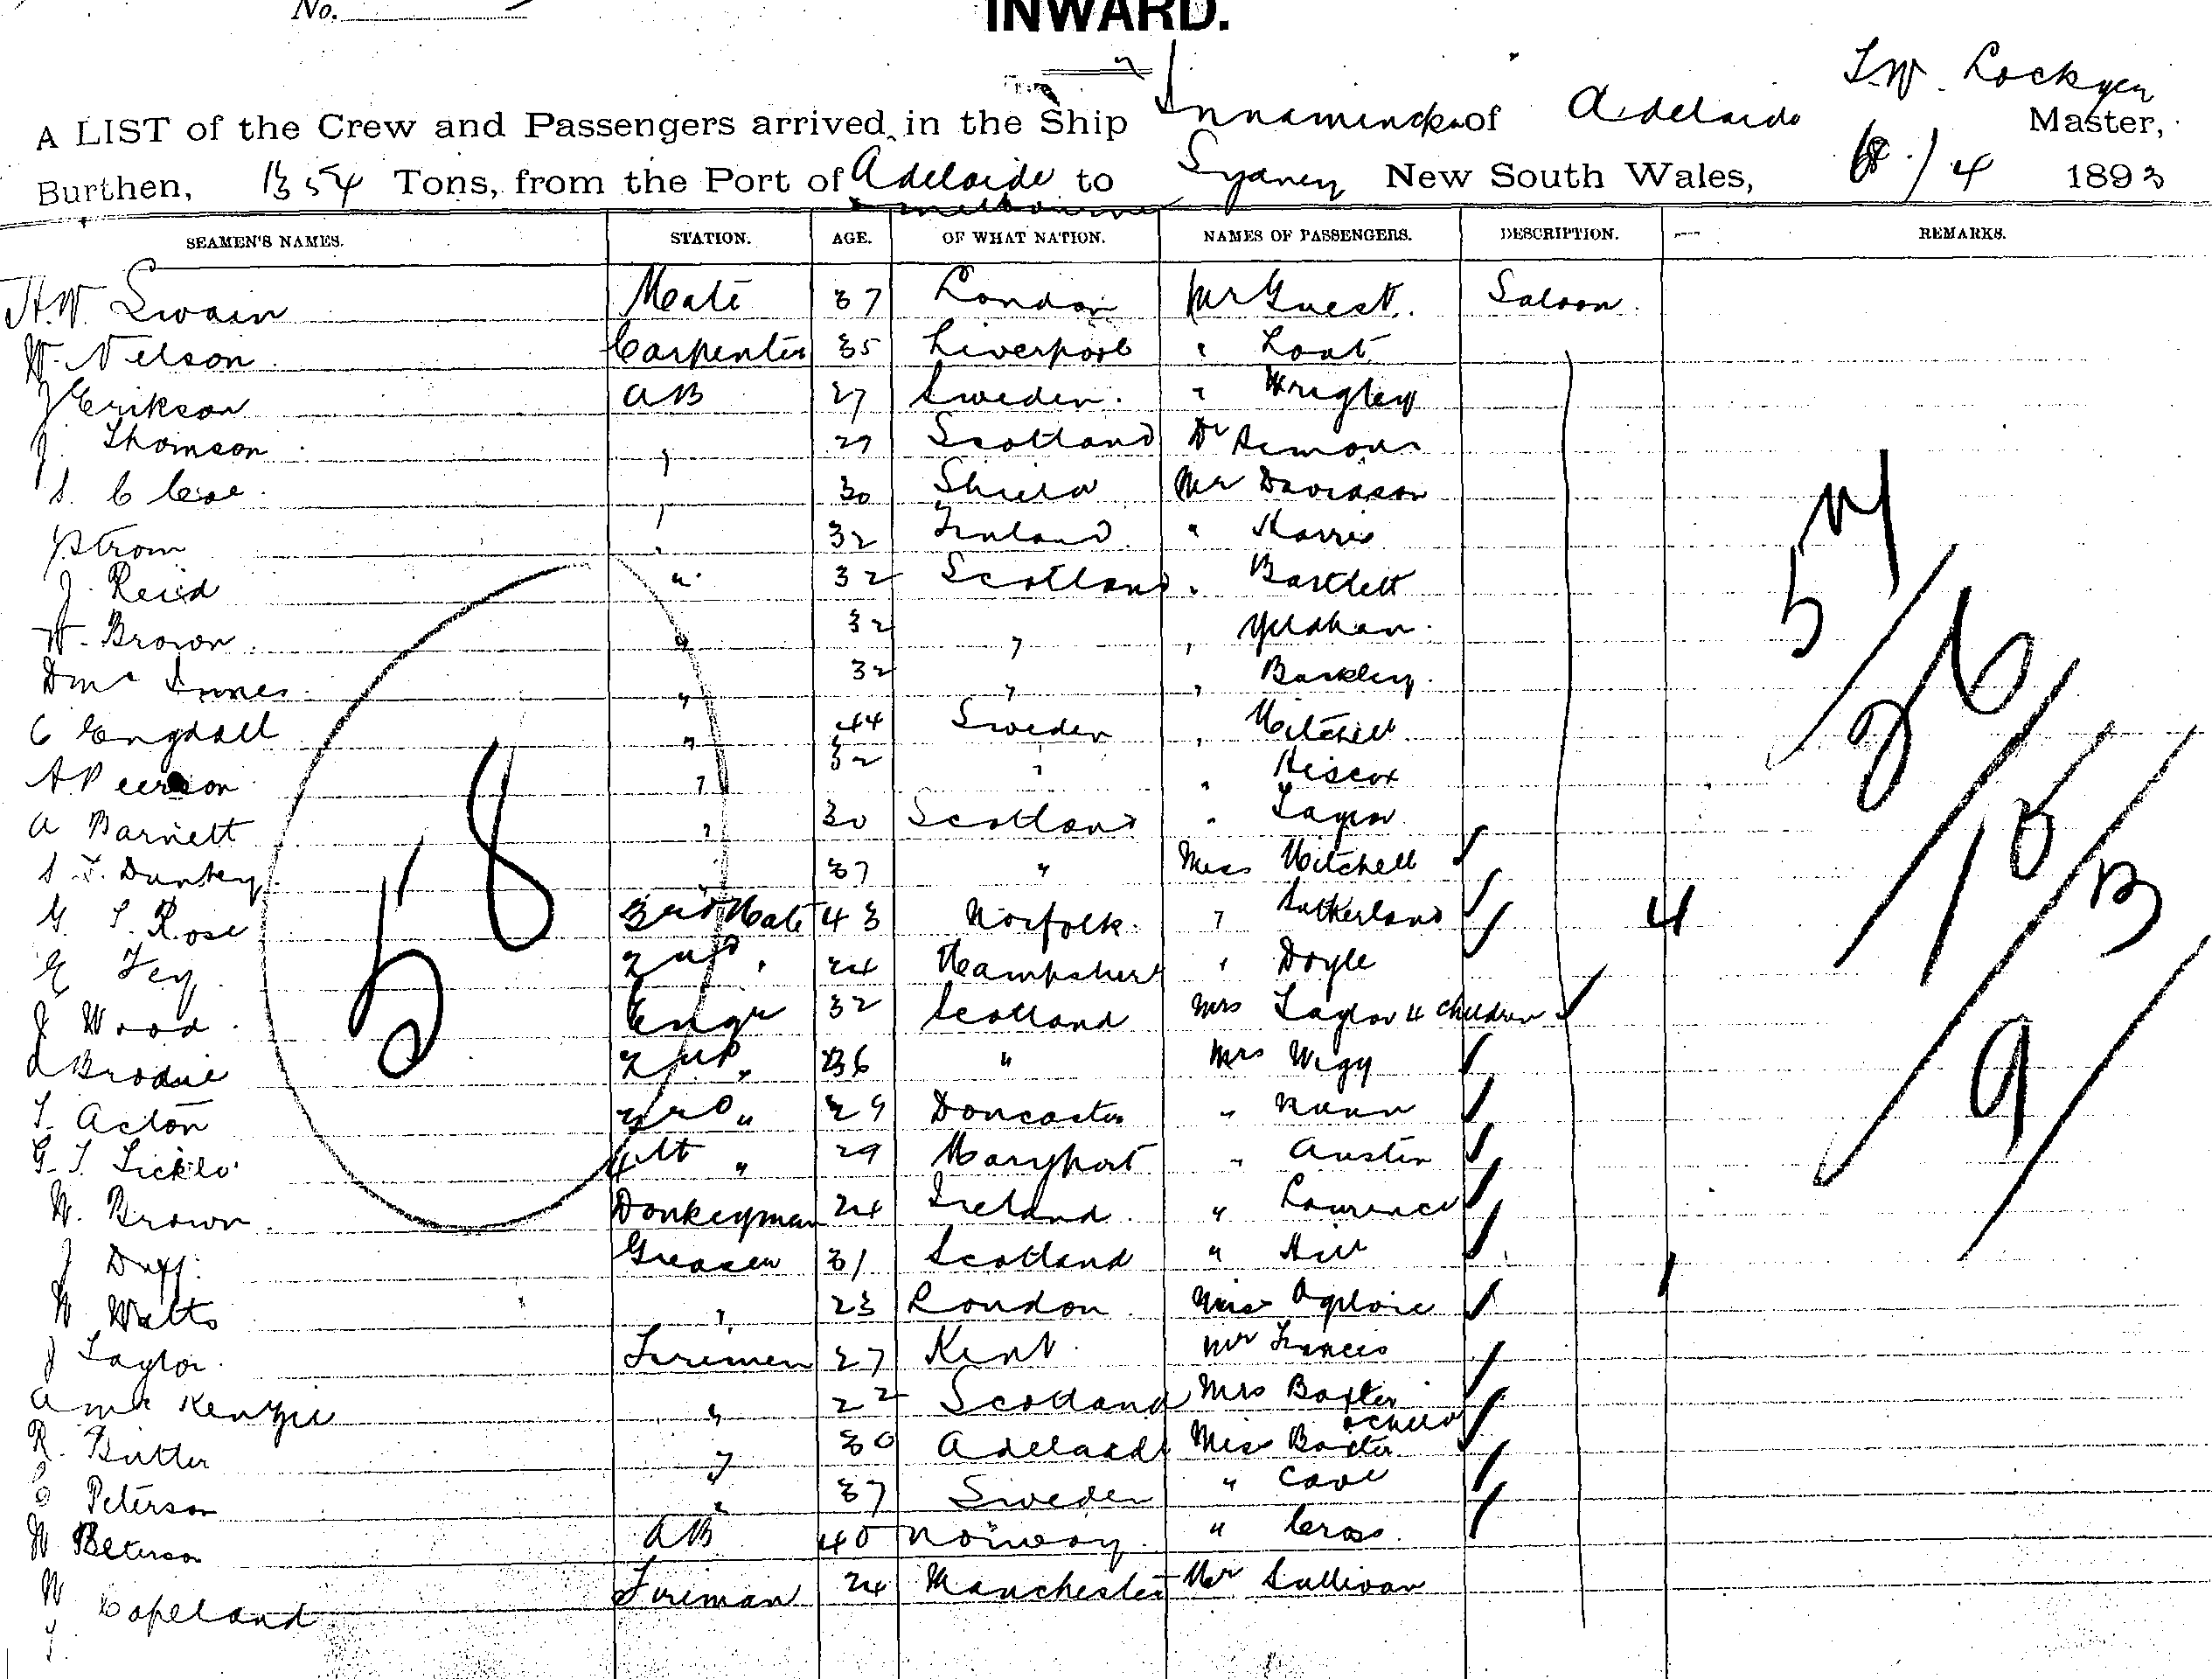 No.
INWARD.
T.W. Lockyer
A LIST of the Crew and Passengers arrived in the Ship Innamincka of Adelaide Master,
Burthen, 1354 Tons, from the Port of Adelaide to Sydney New South Wales, /4 1893
& Melbourne
SEAMEN'S NAMES. STATION. AGE. OF WHAT NATION. NAMES OF PASSENGERS. DESCRIPTION. REMARKS.
H.W. Swain Mate 37 London Mr Guest. Saloon.
W. Nelson Carpenter 35 Liverpool " Loat
J Erikson AB 27 Sweden. " Wrigley
J. Thomson " 29 Scotland Dr
S. 30 Mr Davidson
J Strom " 32 Finland " Harris
J. Reid " 32 Scotland " Bartlett
W. Brown " 32 " "
D Mc Innes " 32 " " Barkley.
C Engdall " 44 Sweden " Mitchell
A Peerson " 32 " " Hiscox
A Barnett " 30 Scotland " Taylor
S. T. " 37 " Miss Mitchell
G. T. Rose 3rd Mate 43 Norfolk. " Sutherland 4
E Fey 2nd " 24 Hampshire " Doyle
J Wood Engr 32 Scotland Mrs Taylor 4 Children
Brodie 2nd " 36 " Mrs Wigg
T. Acton 3rd " 29 Doncaster " Nunn
G. T. 4th " 29 Maryport " Austin
W. Brown Donkeyman 24 Ireland " Lawrence
J Duff Greaser 31 Scotland " Hill
W Watts " 23 London Miss
J Taylor Firemen 27 Kent Mr Francis
A Mc Kenzie " 22 Scotland Mrs Baxter
& child
R. Butler " 30 Adelaide Miss Baxter
Peterson " 37 Sweden " Cave
W Peterson AB 40 Norway " Cross.
W Copeland Fireman 24 Manchester Mr Sullivan
58
54/26/18/13/9